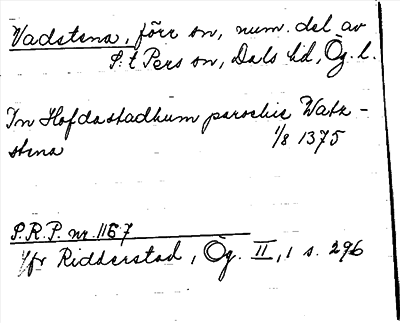 Vadstena, förr sn, num. del av
S:t Pers sn, Dals hd, Ög. l.
In Hofdastadhum parochie Watz-
stena 1/8 1375
P.R.P. nr. 1167
Jfr Ridderstad, Ög. II, 1 s. 296